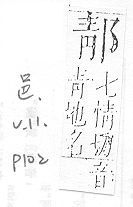 郬
七情切音
青地名
邑.
V.11.
P102